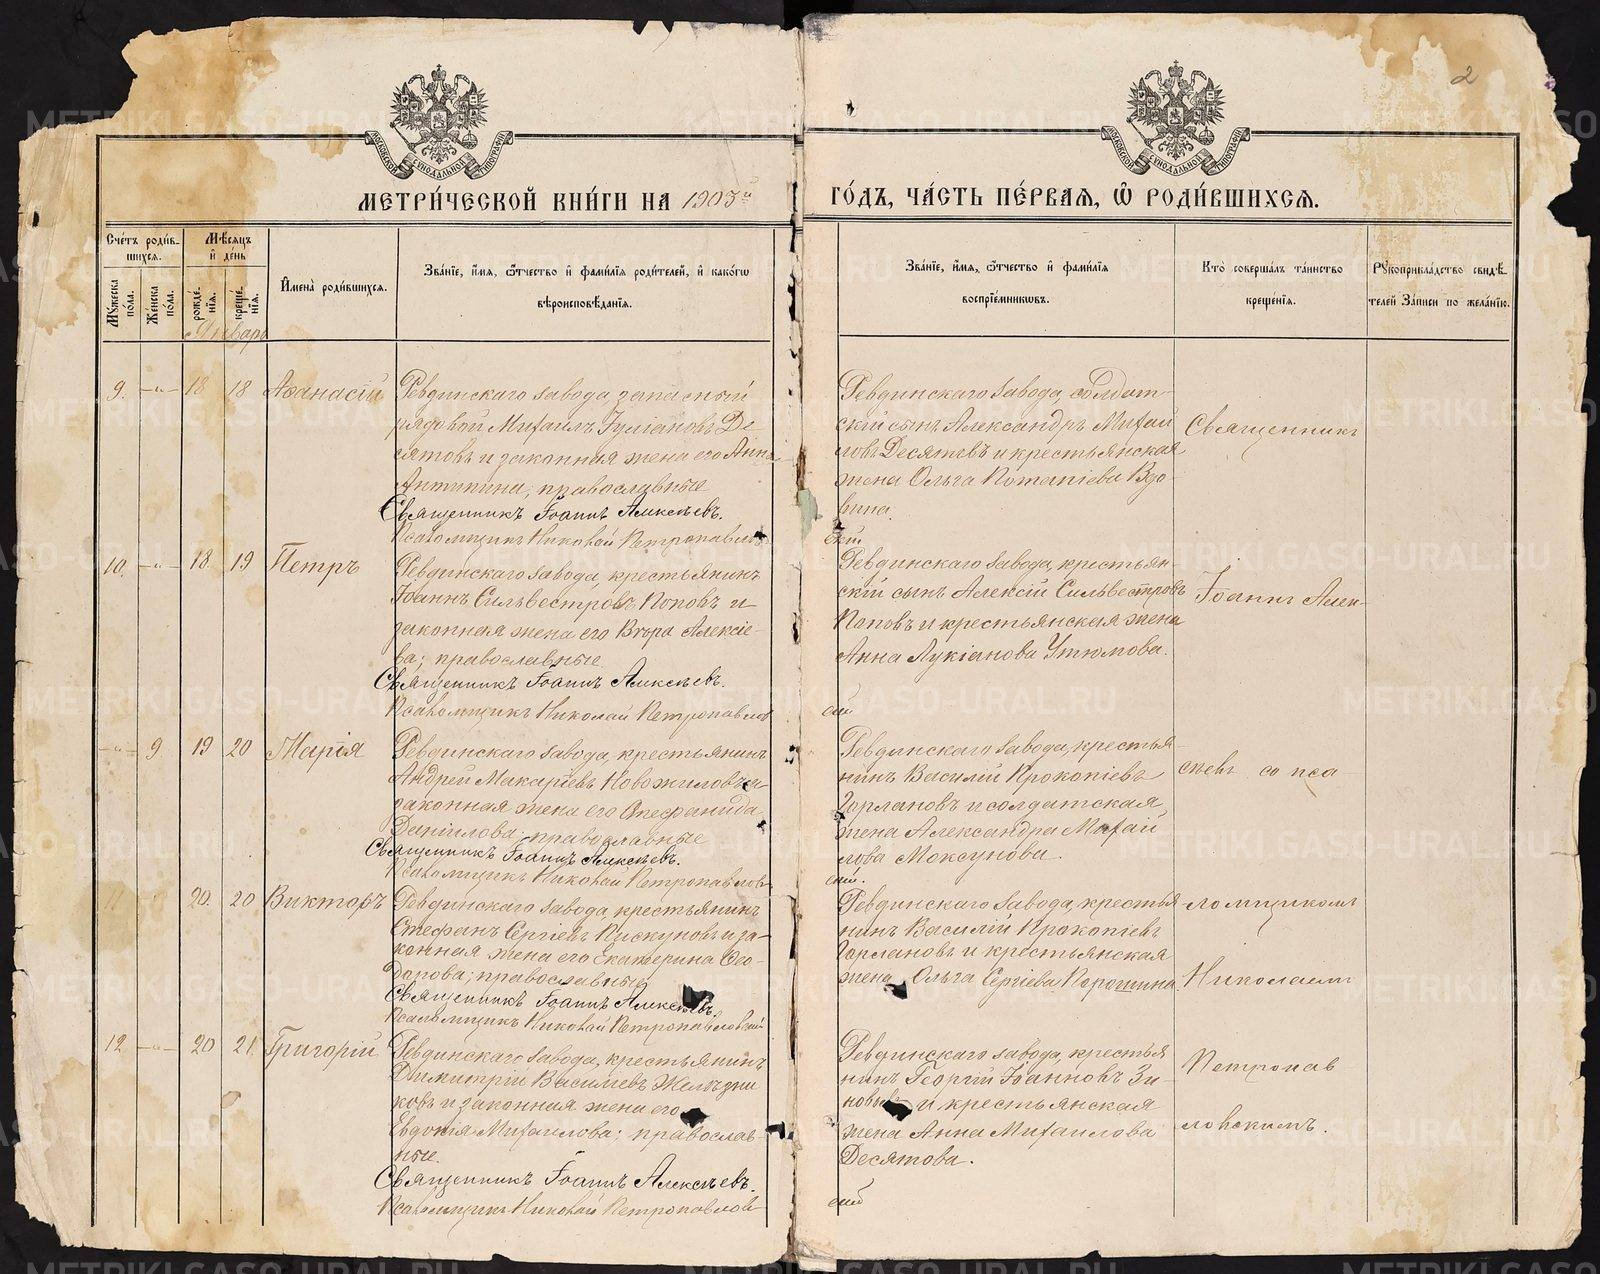 2
МОСКОВСКОЙ СѴНОДАЛЬНОЙ ТИПОГРАФІИ
МОСКОВСКОЙ СѴНОДАЛЬНОЙ ТИПОГРАФІИ
МЕТРИ́ЧЕСКОЙ КНИ́ГИ НА 1903й ГО́ДЪ, ЧА́СТЬ ПЕ́РВАЯ, Ѡ҆ РОДИ́ВШИХСЯ.
Сче́тъ роди́в-
шихся.
Мꙋ́жеска по́ла.
Же́нска по́ла.
Мѣ́сяцъ
и҆ де́нь
рожде́-
нїя.
креще́-
нїя.
Январь
И҆мена̀ роди́вшихся.
Зва́нїе, и҆́мя, ѻ҆́тчество и҆ фами́лїя роди́телей, и҆ како́гѡ
вѣроисповѣ́данїя.
Зва́нїе, и҆́мя, ѻ҆́тчество и҆ фами́лїя
воспрїе́мникѡвъ.
Кто̀ соверша́лъ та́инство
креще́нїя.
Рꙋкоприкла́дство свидѣ́-
телей за́писи по жела́нїю.
9. -"- 18 18 Аѳанасій
Ревдинскаго завода запасный
рядовой Михаилъ Іуліановъ Де-
сятовъ и законная жена его Анна
Антипина; православные
Священникъ Іоаннъ Алексѣевъ.
Псаломщикъ Николай Петропавлов
Ревдинскаго завода, солдат-
скій сынъ Александръ Михаи-
ловъ Десятовъ и крестьянская
жена Ольга Потапіева Вдо-
вина.
скій
10. -"- 18. 19 Петръ
Ревдинскаго завода, крестьянинъ
Іоаннъ Сильвестровъ Поповъ и
законная жена его Вѣра Алексіе-
ва; православные.
Священникъ Іоаннъ Алексѣевъ.
Псаломщикъ Николай Петропавлов
Ревдинскаго завода, крестьян-
скій сынъ Алексій Сильвестровъ
Поповъ и крестьянская жена
Анна Лукіанова Утюмова.
скій
-"- 9 19 20 Марія
Ревдинскаго завода, крестьянинъ
Андрей Макаріевъ Новожиловъ и
законная жена его Стефанида
Даніилова; православные
Священникъ Іоаннъ Алексѣевъ.
Псаломщикъ Николай Петропавлов
Ревдинскаго завода, крестья-
нинъ Василій Прокопіевъ
Горлановъ и солдатская
жена Александра Михаи-
лова Моксунова.
скій.
11 20. 20 Викторъ
Ревдинскаго завода, крестьянинъ
Стефанъ Сергіевъ Пискуновъ и за-
конная жена его Екатерина Ѳео-
дорова; православные
Священникъ Іоаннъ Алексѣевъ.
Псаломщикъ Николай Петропавловскій
Ревдинскаго завода, крестья-
нинъ Василій Прокопіевъ
Горлановъ и крестьянская
жена Ольга Сергіева Порошина
12 -"- 20 21. Григорій
Ревдинскаго завода, крестьянинъ
Димитрій Василіевъ Желѣзни-
ковъ и законная жена его
Евдокія Михаилова; православ-
ные.
Священникъ Іоаннъ Алексѣевъ.
Псаломщикъ Николай Петропавлов
Ревдинскаго завода, крестья-
нинъ Георгій Іоанновъ Зи-
новьевъ и крестьянская
жена Анна Михаилова
Десятова.
скій
Священникъ
Іоаннъ Алек-
сѣевъ со пса-
ломщикомъ
Николаемъ
Петропав-
ловскимъ.
METRIKI.GASO-URAL.RU